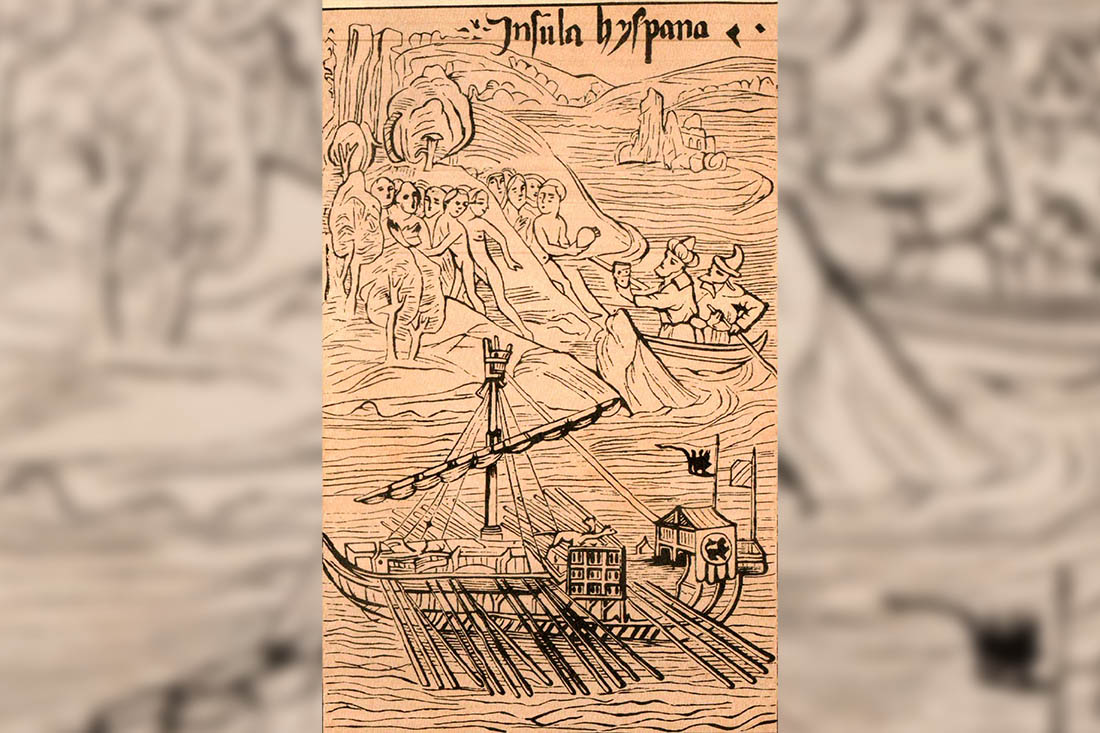 Insula hyspana